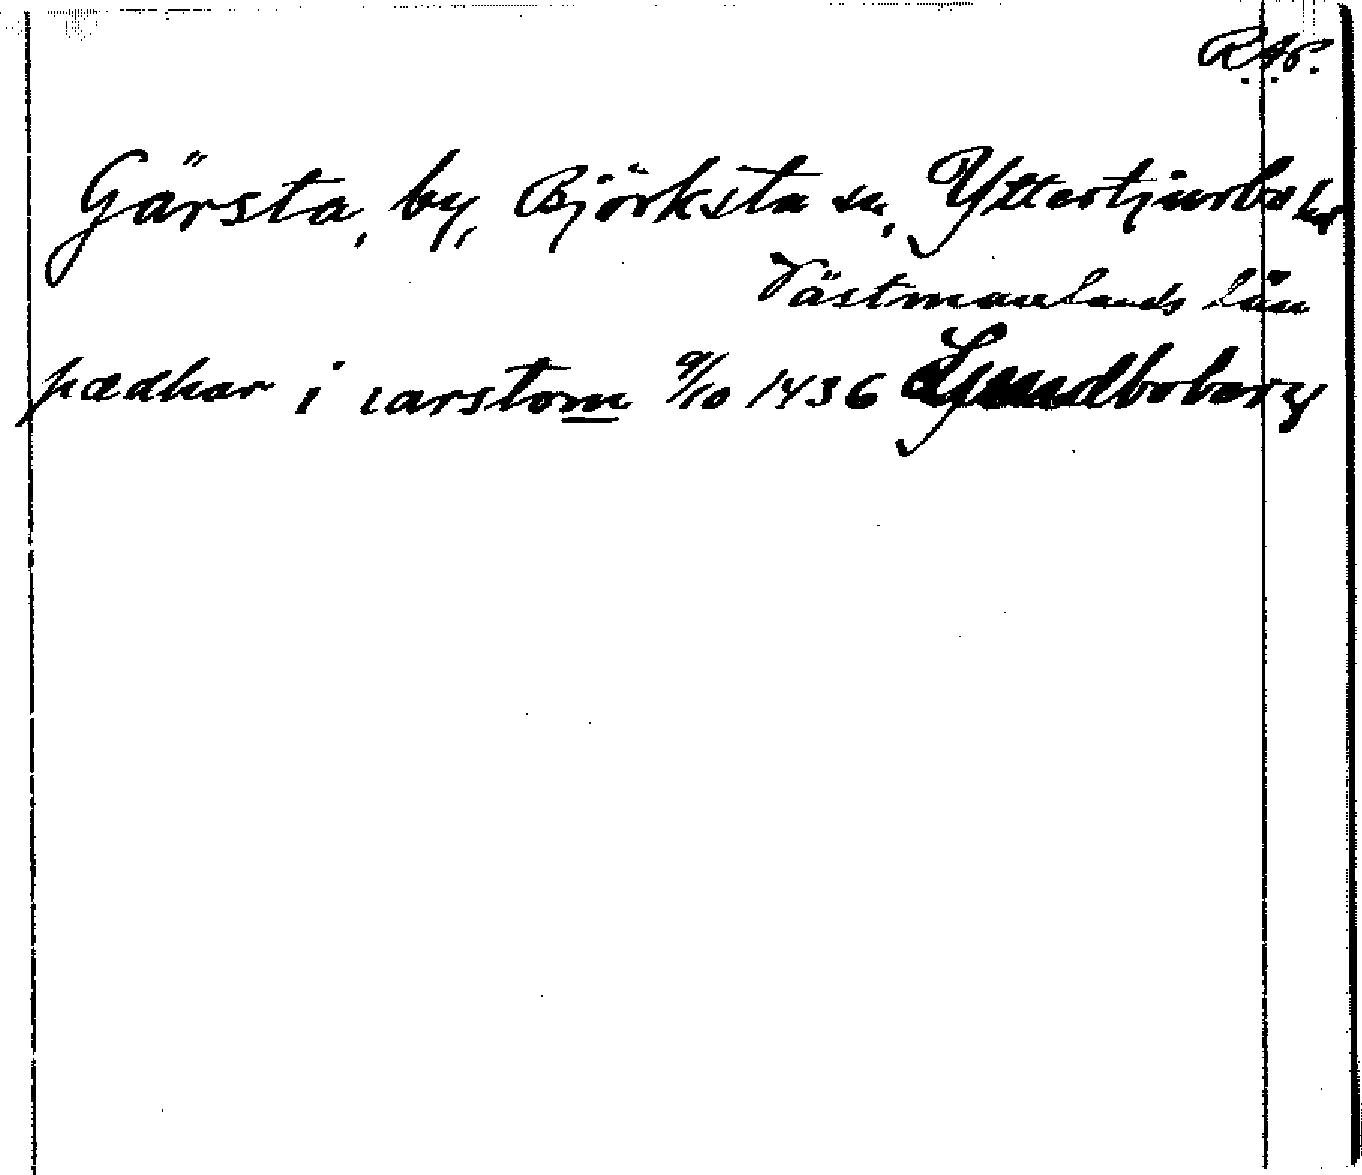 R.A.P.
Gärsta, by, Björksta sn, Yttertjurbo hd
Västmanlands län
pædhar i iarstom 9/10 1436 Ljundboberg